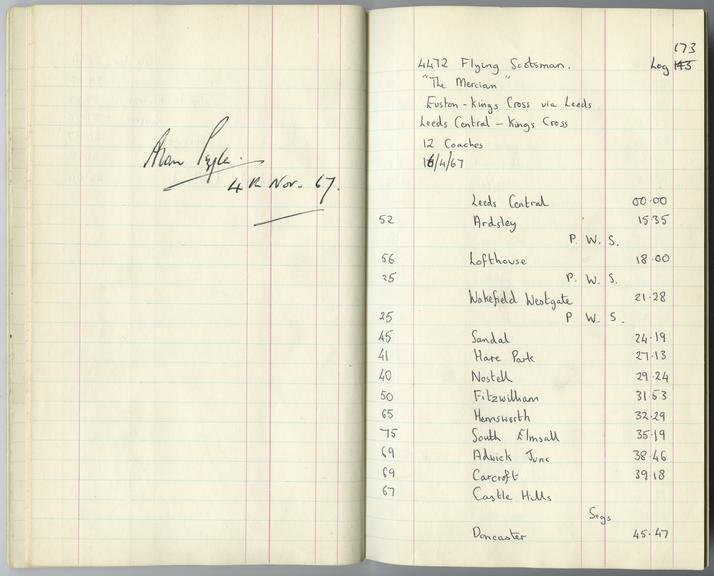 Alan Pegler.
4th Nov. 67.
173
4472 Flying Scotsman. Log 143
"The Mercian"
Euston - Kings Cross via Leeds
Leeds Central - Kings Cross
12 Coaches
/4/67
Leeds Central 00.00
52 Ardsley 15.35
P. W. S.
56 Lofthouse 18.00
25 P. W. S.
Wakefield Westgate 21.28
25 P. W. S.
45 Sandal 24.19
41 Hare Park 27.13
40 Nostell 29.24
50 Fitzwilliam 31.53
65 Hemsworth 32.29
75 South Elmsall 35.19
69 Adwick Junc 38.46
69 Carcroft 39.18
67 Castle Hills
Sigs
Doncaster 45.47